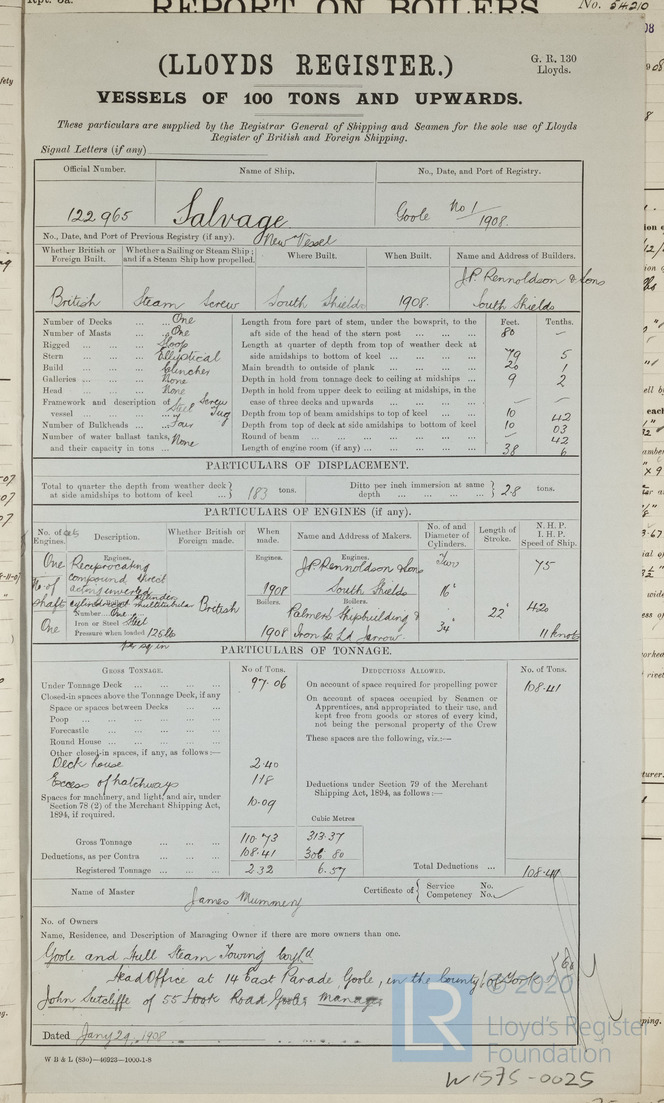 Rpt. 8a. REPORT ON BOILERS. No. 54210
(LLOYDS REGISTER.)
G. R. 130
Lloyds.
VESSELS OF 100 TONS AND UPWARDS.
These particulars are supplied by the Registrar General of Shipping and Seamen for the sole use of Lloyds
Register of British and Foreign Shipping.
Signal Letters (if any)
Official Number. Name of Ship. No., Date, and Port of Registry.
122965 Salvage Goole No 1/1908.
No., Date, and Port of Previous Registry (if any). New Vessel
Whether British or Foreign Built. Whether a Sailing or Steam Ship; and if a Steam Ship how propelled. Where Built. When Built. Name and Address of Builders.
British Steam Screw South Shields 1908. J.P. Rennoldson & Sons South Shields
Number of Decks ... ... One
Number of Masts ... ... One
Rigged ... ... ... Sloop
Stern ... ... ... Elliptical
Build ... ... ... Clincher
Galleries ... ... ... None
Head ... ... ... None
Framework and description of vessel ... ... Steel Screw Tug
Number of Bulkheads ... Four
Number of water ballast tanks, and their capacity in tons ... None
Feet. Tenths.
Length from fore part of stem, under the bowsprit, to the aft side of the head of the stern post ... ... ... 80 —
Length at quarter of depth from top of weather deck at side amidships to bottom of keel ... ... ... ... 79 5
Main breadth to outside of plank ... ... ... ... 20 1
Depth in hold from tonnage deck to ceiling at midships ... 9 2
Depth in hold from upper deck to ceiling at midships, in the case of three decks and upwards ... ... ... — —
Depth from top of beam amidships to top of keel ... ... 10 42
Depth from top of deck at side amidships to bottom of keel 10 03
Round of beam ... ... ... ... ... ... — 42
Length of engine room (if any) ... ... ... ... 38 6
PARTICULARS OF DISPLACEMENT.
Total to quarter the depth from weather deck at side amidships to bottom of keel ... 183 tons. Ditto per inch immersion at same depth ... ... 2.8 tons.
PARTICULARS OF ENGINES (if any).
No. of sets Engines. Description. Whether British or Foreign made. When made. Name and Address of Makers. No. of and Diameter of Cylinders. Length of Stroke. N. H. P. I. H. P. Speed of Ship.
One Engines. Reciprocating compound direct acting inverted cylinder British Engines. 1908 Engines. J.P. Rennoldson & Sons South Shields Two 16" 75
No. of Shaft One Cylindrical multitubular Boilers. Boilers. Palmers Shipbuilding & 22" 420
Number One
Iron or Steel Steel
Pressure when loaded 125 lb per sq in 1908 Iron Co Ld Jarrow 34" 11 knots
PARTICULARS OF TONNAGE.
GROSS TONNAGE. No. of Tons. DEDUCTIONS ALLOWED. No. of Tons.
Under Tonnage Deck ... ... ... ... 97.06
Closed-in spaces above the Tonnage Deck, if any
Space or spaces between Decks ... ...
Poop ... ... ... ... ... ...
Forecastle ... ... ... ... ...
Round House ... ... ... ... ...
Other closed-in spaces, if any, as follows:—
Deck house 2.40
Excess of hatchways 1.18
Spaces for machinery, and light, and air, under Section 78 (2) of the Merchant Shipping Act, 1894, if required. 10.09
On account of space required for propelling power 108.41
On account of spaces occupied by Seamen or Apprentices, and appropriated to their use, and kept free from goods or stores of every kind, not being the personal property of the Crew
These spaces are the following, viz.:—
Deductions under Section 79 of the Merchant Shipping Act, 1894, as follows:—
Cubic Metres
Gross Tonnage ... ... ... 110.73 313.37
Deductions, as per Contra ... ... 108.41 306.80
Registered Tonnage ... ... ... 2.32 6.57
Total Deductions ... 108.41
Name of Master James Mummery Certificate of Service No. Competency No.
No. of Owners
Name, Residence, and Description of Managing Owner if there are more owners than one.
Goole and Hull Steam Towing Coy Ld
Head Office at 14 East Parade Goole, in the County of York
John Sutcliffe of 55 Hook Road Goole Manager
Dated Jany 29, 1908
W B & L (83o)—46923—1000-1-8
LR © 2020
Lloyd's Register
Foundation
W1575-0025